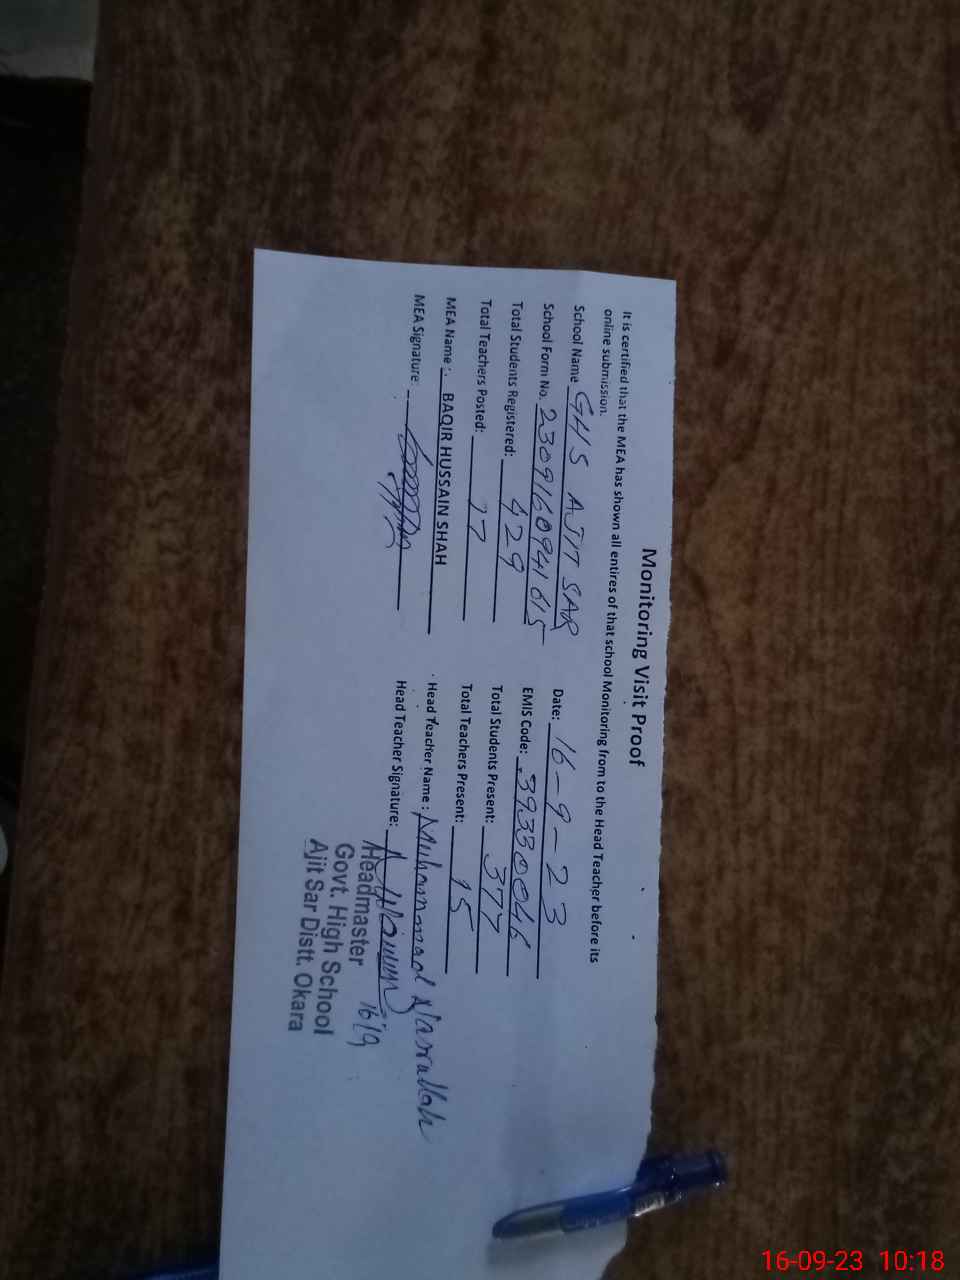 Monitoring Visit Proof
It is certified that the MEA has shown all entires of that school Monitoring from to the Head Teacher before its
online submission.
School Name GHS AJIT SAR Date: 16-9-23
School Form No. 2309160941615 EMIS Code: 39330046
Total Students Registered: 429 Total Students Present: 377
Total Teachers Posted: 17 Total Teachers Present: 15
MEA Name: BAQIR HUSSAIN SHAH Head Teacher Name: Muhammad Nasrullah
MEA Signature: Head Teacher Signature:
Headmaster 16/9
Govt. High School
Ajit Sar Distt. Okara
16-09-23 10:18